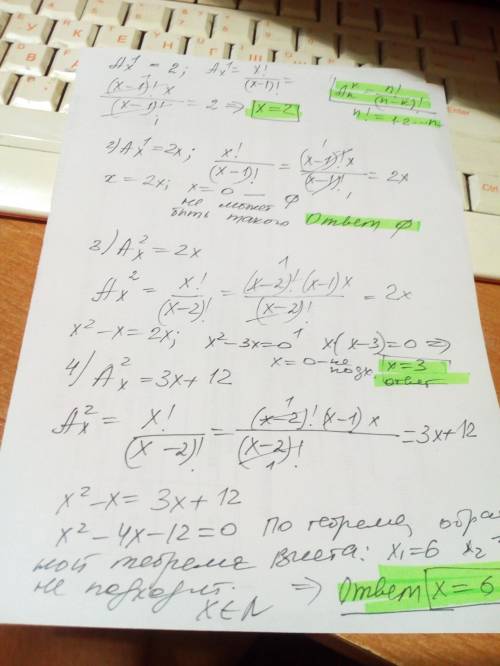 A_x^1 = 2; A_x^1 = x!/(x-1)! =
(x-1)! x/(x-1)! = 2 => x=2
A_n^k = n!/(n-k)!
n! = 1·2...n
2) A_x^1 = 2x; x!/(x-1)! = (x-1)! x/(x-1)! = 2x
x = 2x; x=0 — не может быть такого Ответ ∅
3) A_x^2 = 2x
A_x^2 = x!/(x-2)! = (x-2)! (x-1) x/(x-2)! = 2x
x² - x = 2x; x² - 3x = 0 x(x-3) = 0 =>
x = 0 - не подх. x = 3 ответ
4) A_x^2 = 3x + 12
A_x^2 = x!/(x-2)! = (x-2)! (x-1) x/(x-2)! = 3x+12
x² - x = 3x + 12
x² - 4x - 12 = 0 по теореме, обрат
ной теореме Виета: x₁=6 x₂=
не подходит. => Ответ x = 6
x∈N